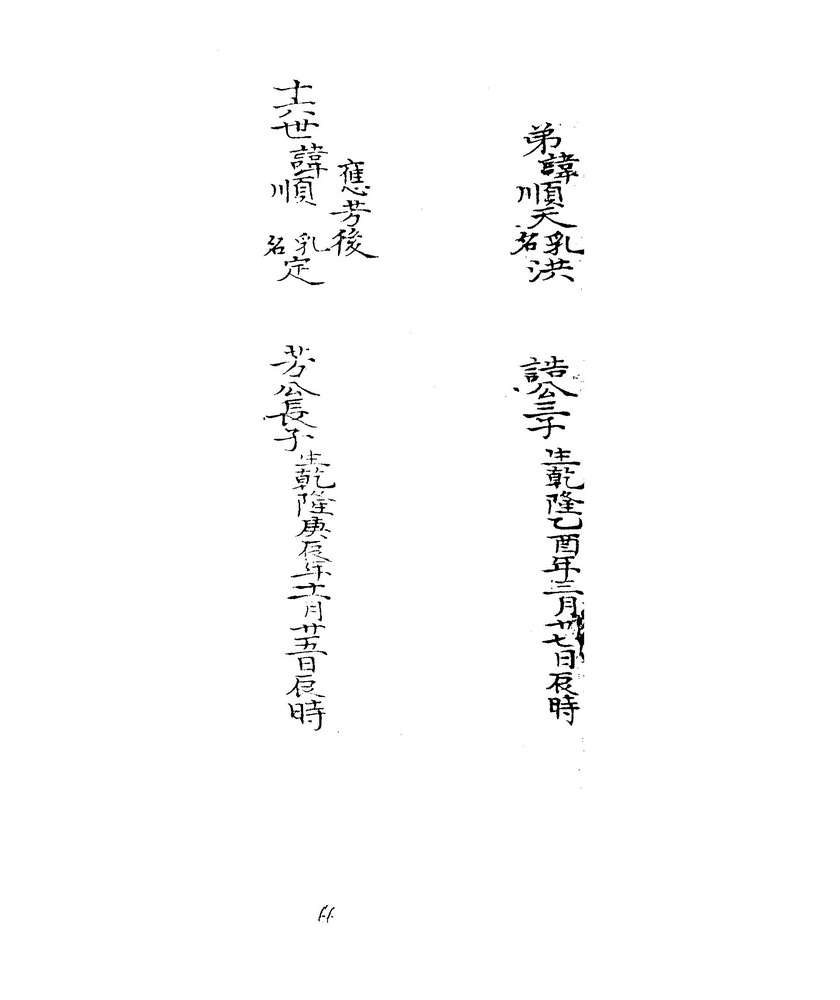 弟諱順天乳名洪 誥公三子生乾隆乙酉年三月廿七日辰時
應芳後
十六世諱順乳名定 芳公長子生乾隆庚辰年十一月廿五日辰時
66